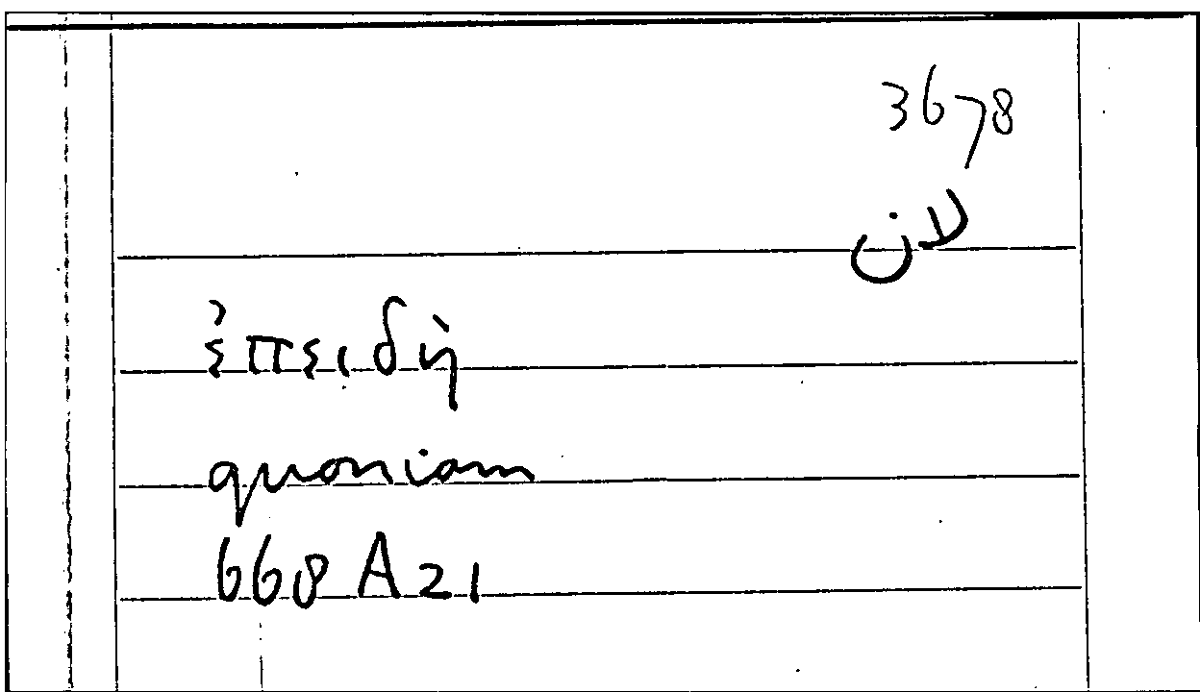 3678
لان
ἐπειδὴ
quoniam
668 A 21